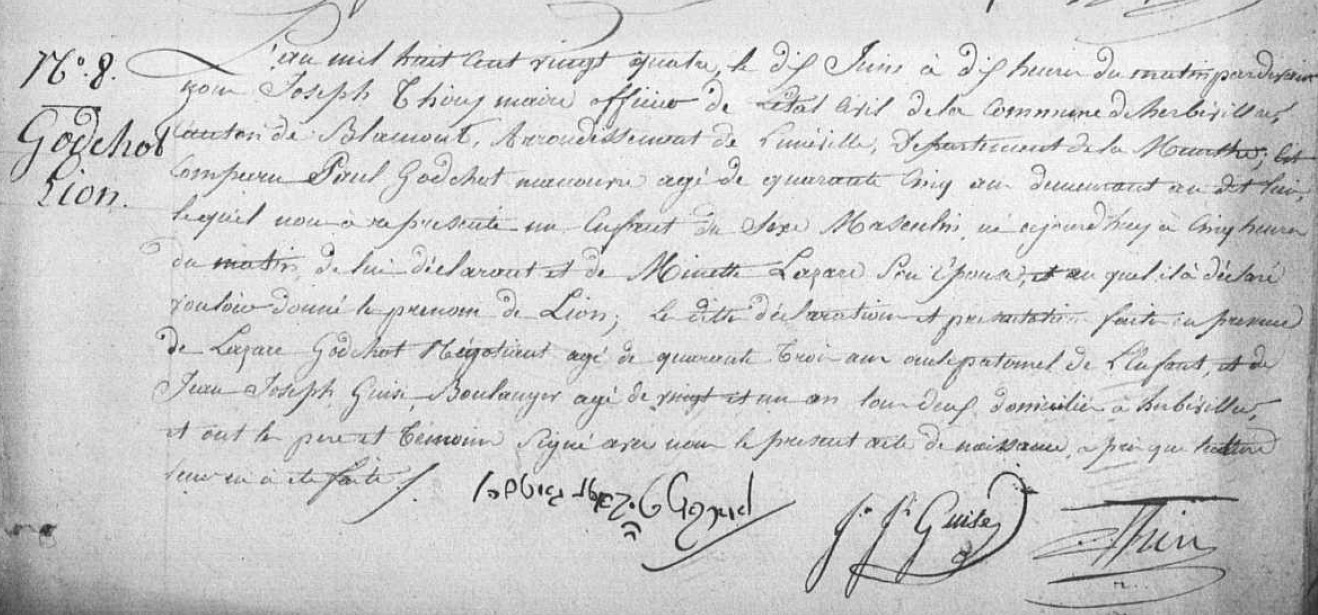 N.º 8.
Godchot
Lion.
L'an mil huit cent vingt quatre, le dix Juin à dix heures du matin pardevant
nous Joseph maire officier de letat Civil de la Commune dherbéviller,
Canton de Blamont, Arrondissement de Lunéville, Département de la Meurthe, Est
Comparu Paul Godchot manœuvre agé de quarante Cinq ans demeurant au dit lieu,
lequel nous à representé un Enfant du Sexe Masculin, né ajourdhuy à Cinq heures
du matin, de lui déclarant et de Minette Lazare Son Épouse, et au quel il à déclaré
vouloir donné le prenom de Lion; Le ditte déclaration et presentation faite en presence
de Lazare Godchot Négotient agé de quarante Trois ans oncle paternel de L'Enfant, et de
Jean Joseph Guise, Boulanger agé de vingt et un an tous deux domiciliés à herbéviller,
et ont les pere et Témoins Signé avec nous le present acte de naissance, après que lecture
leur en à été faite /.
J. Jh Guise